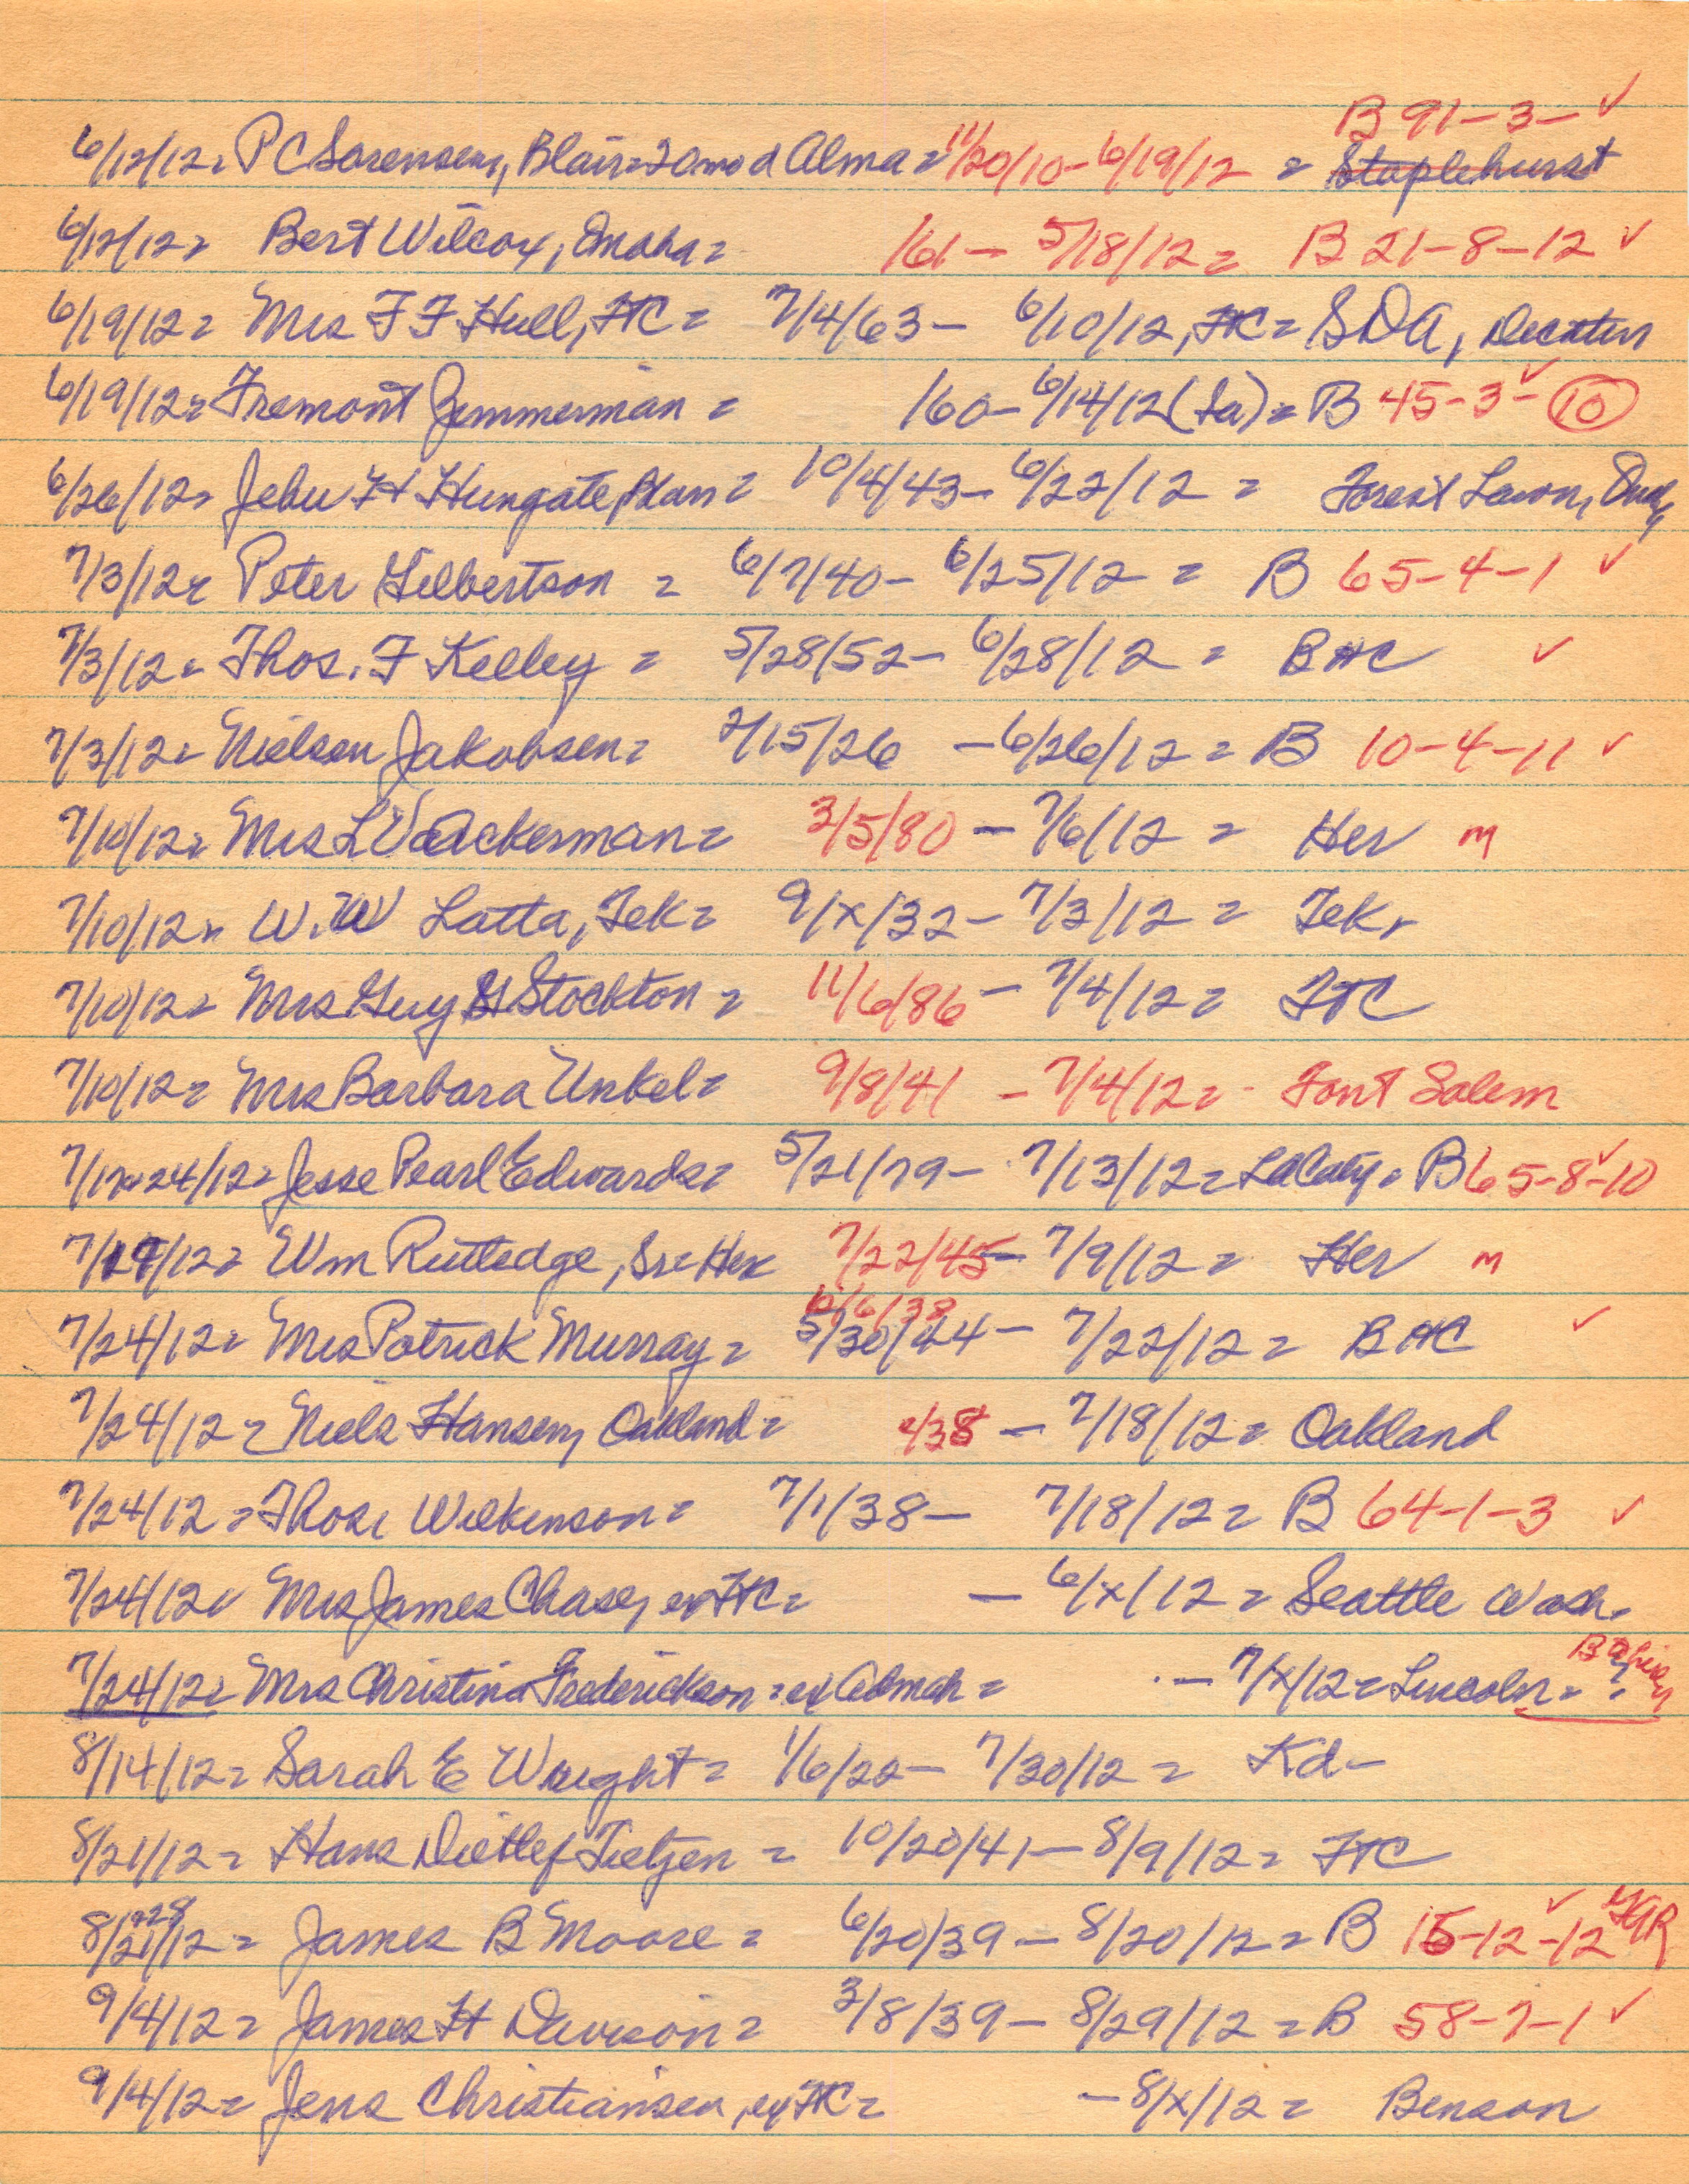 B 91-3- ✓
6/12/12= P C Sorensen, Blair= 20mo d Alma = 11/20/10-6/19/12 = Staplehurst
6/12/12= Bert Wilcox, Omaha= /61- 5/18/12= B 21-8-12 ✓
6/19/12= Mrs F F Hull, FTC= 7/4/63- 6/10/12, FTC= SDA, Decatur
6/19/12= Fremont Zimmerman = /60- 6/14/12 (Ia)= B 45-3- ✓ 10
6/26/12= Jehu H Hungate, Blair= 10/4/43- 6/22/12 = Forest Lawn, Omaha
7/3/12= Peter Gilbertson = 6/7/40- 6/25/12 = B 65-4-1 ✓
7/3/12= Thos. F Kelley = 5/28/52- 6/28/12 = BHC ✓
7/3/12= Nielsen Jakobsen= 2/15/26 -6/26/12= B 10-4-11 ✓
7/10/12= Mrs L V Ackerman= 3/5/80 - 7/6/12 = Her m
7/10/12= W. W Latta, Tek= 9/x/32- 7/3/12 = Tek.
7/10/12= Mrs Guy H Stockton = 11/6/86 - 7/4/12= FTC
7/10/12= Mrs Barbara Unkel= 9/8/41 - 7/4/12= - Font Salem
7/17=24/12= Jesse Pearl Edwards= 5/21/79- 7/13/12= = B 65-8-10 ✓
7/17/12= Wm Rutledge, Sr= Her 7/22/45- 7/9/12= Her m
10/6/38
7/24/12= Mrs Patrick Murray= 5/30/44- 7/22/12= BHC ✓
7/24/12= Niels Hansen, Oakland= /38 - 7/18/12= Oakland
7/24/12= Thos. Wilkenson= 7/1/38- 7/18/12= B 64-1-3 ✓
7/24/12= Mrs James Chase, ex FTC= - 6/x/12= Seattle Wash.
7/24/12= Mrs Christina Frederickson = ex Admah = - 7/x/12= Lincoln= ? B
8/14/12= Sarah E Wright= 1/6/22- 7/30/12 = Kd-
8/21/12= Hans Dietlef Tietjen = 10/20/41- 8/9/12= FTC
8/21=28/12= James B Moore= 6/20/39- 8/20/12= B 15-12-12 ✓ GAR
9/4/12= James H Davison= 3/8/39- 8/29/12= B 58-7-1 ✓
9/4/12= Jens Christiansen, ex FTC= -8/x/12= Benson